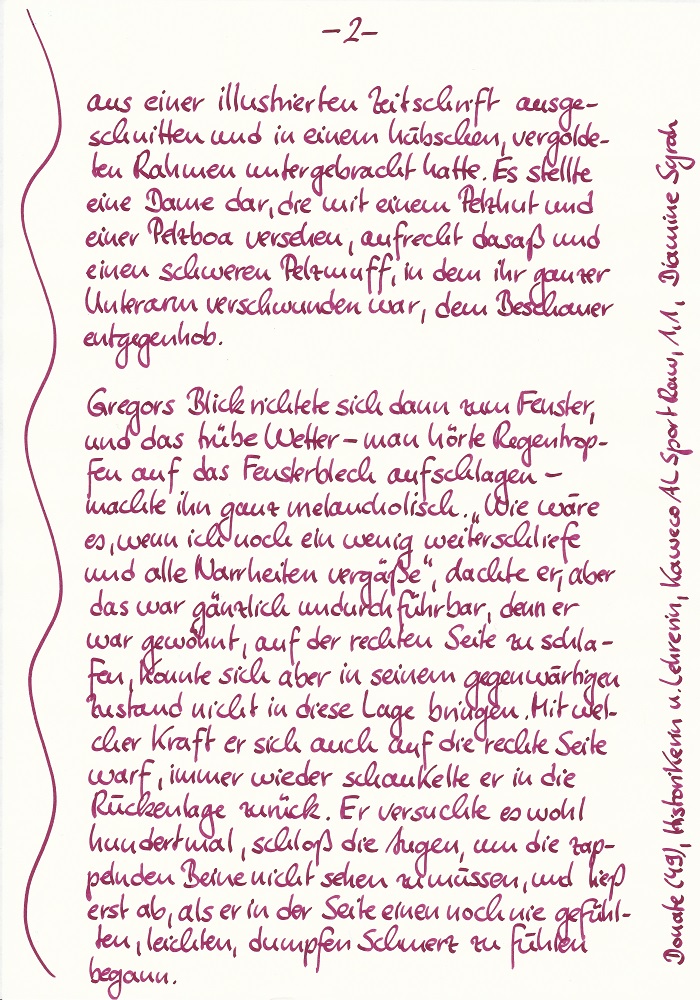 -2-
aus einer illustrierten Zeitschrift ausge-
schnitten und in einem hübschen, vergolde-
ten Rahmen untergebracht hatte. Es stellte
eine Dame dar, die mit einem Pelzhut und
einer Pelzboa versehen, aufrecht dasaß und
einen schweren Pelzmuff, in dem ihr ganzer
Unterarm verschwunden war, dem Beschauer
entgegenhob.
Gregors Blick richtete sich dann zum Fenster,
und das trübe Wetter - man hörte Regentrop-
fen auf das Fensterblech aufschlagen -
machte ihn ganz melancholisch. „Wie wäre
es, wenn ich noch ein wenig weiterschliefe
und alle Narrheiten vergäße“, dachte er, aber
das war gänzlich undurchführbar, denn er
war gewöhnt, auf der rechten Seite zu schla-
fen, konnte sich aber in seinem gegenwärtigen
Zustand nicht in diese Lage bringen. Mit wel-
cher Kraft er sich auch auf die rechte Seite
warf, immer wieder schaukelte er in die
Rückenlage zurück. Er versuchte es wohl
hundertmal, schloß die Augen, um die zap-
pelnden Beine nicht sehen zu müssen, und ließ
erst ab, als er in der Seite einen noch nie gefühl-
ten, leichten, dumpfen Schmerz zu fühlen
begann.
Donate (49), Historikerin u. Lehrerin, Kaweco AL Sport Raw, 1,1, Diamine Syrah